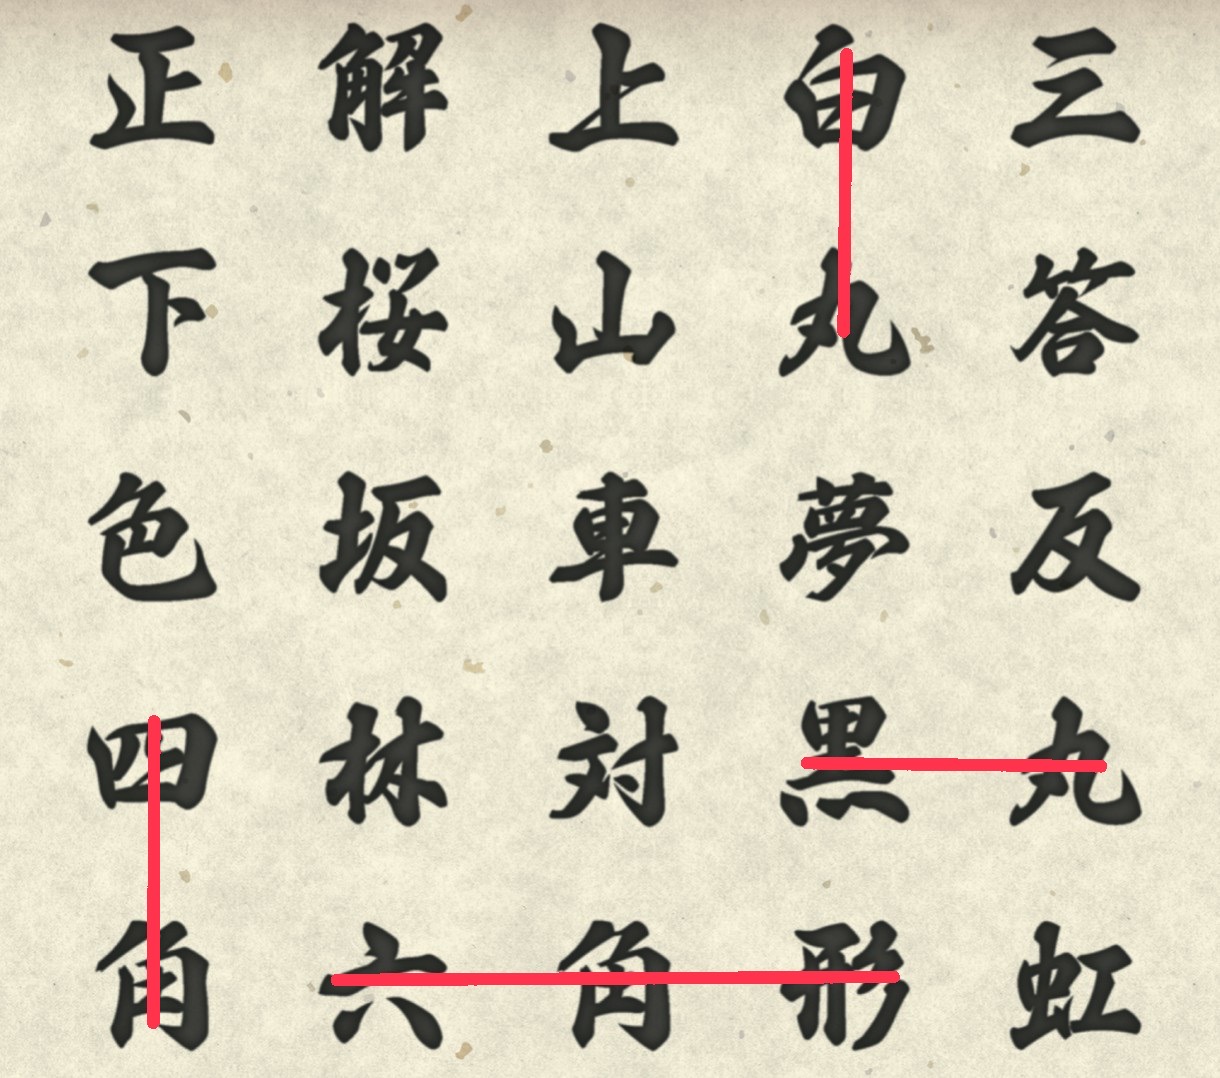 正解上白三
下桜山丸答
色坂車夢反
四林対黒丸
角六角形虹